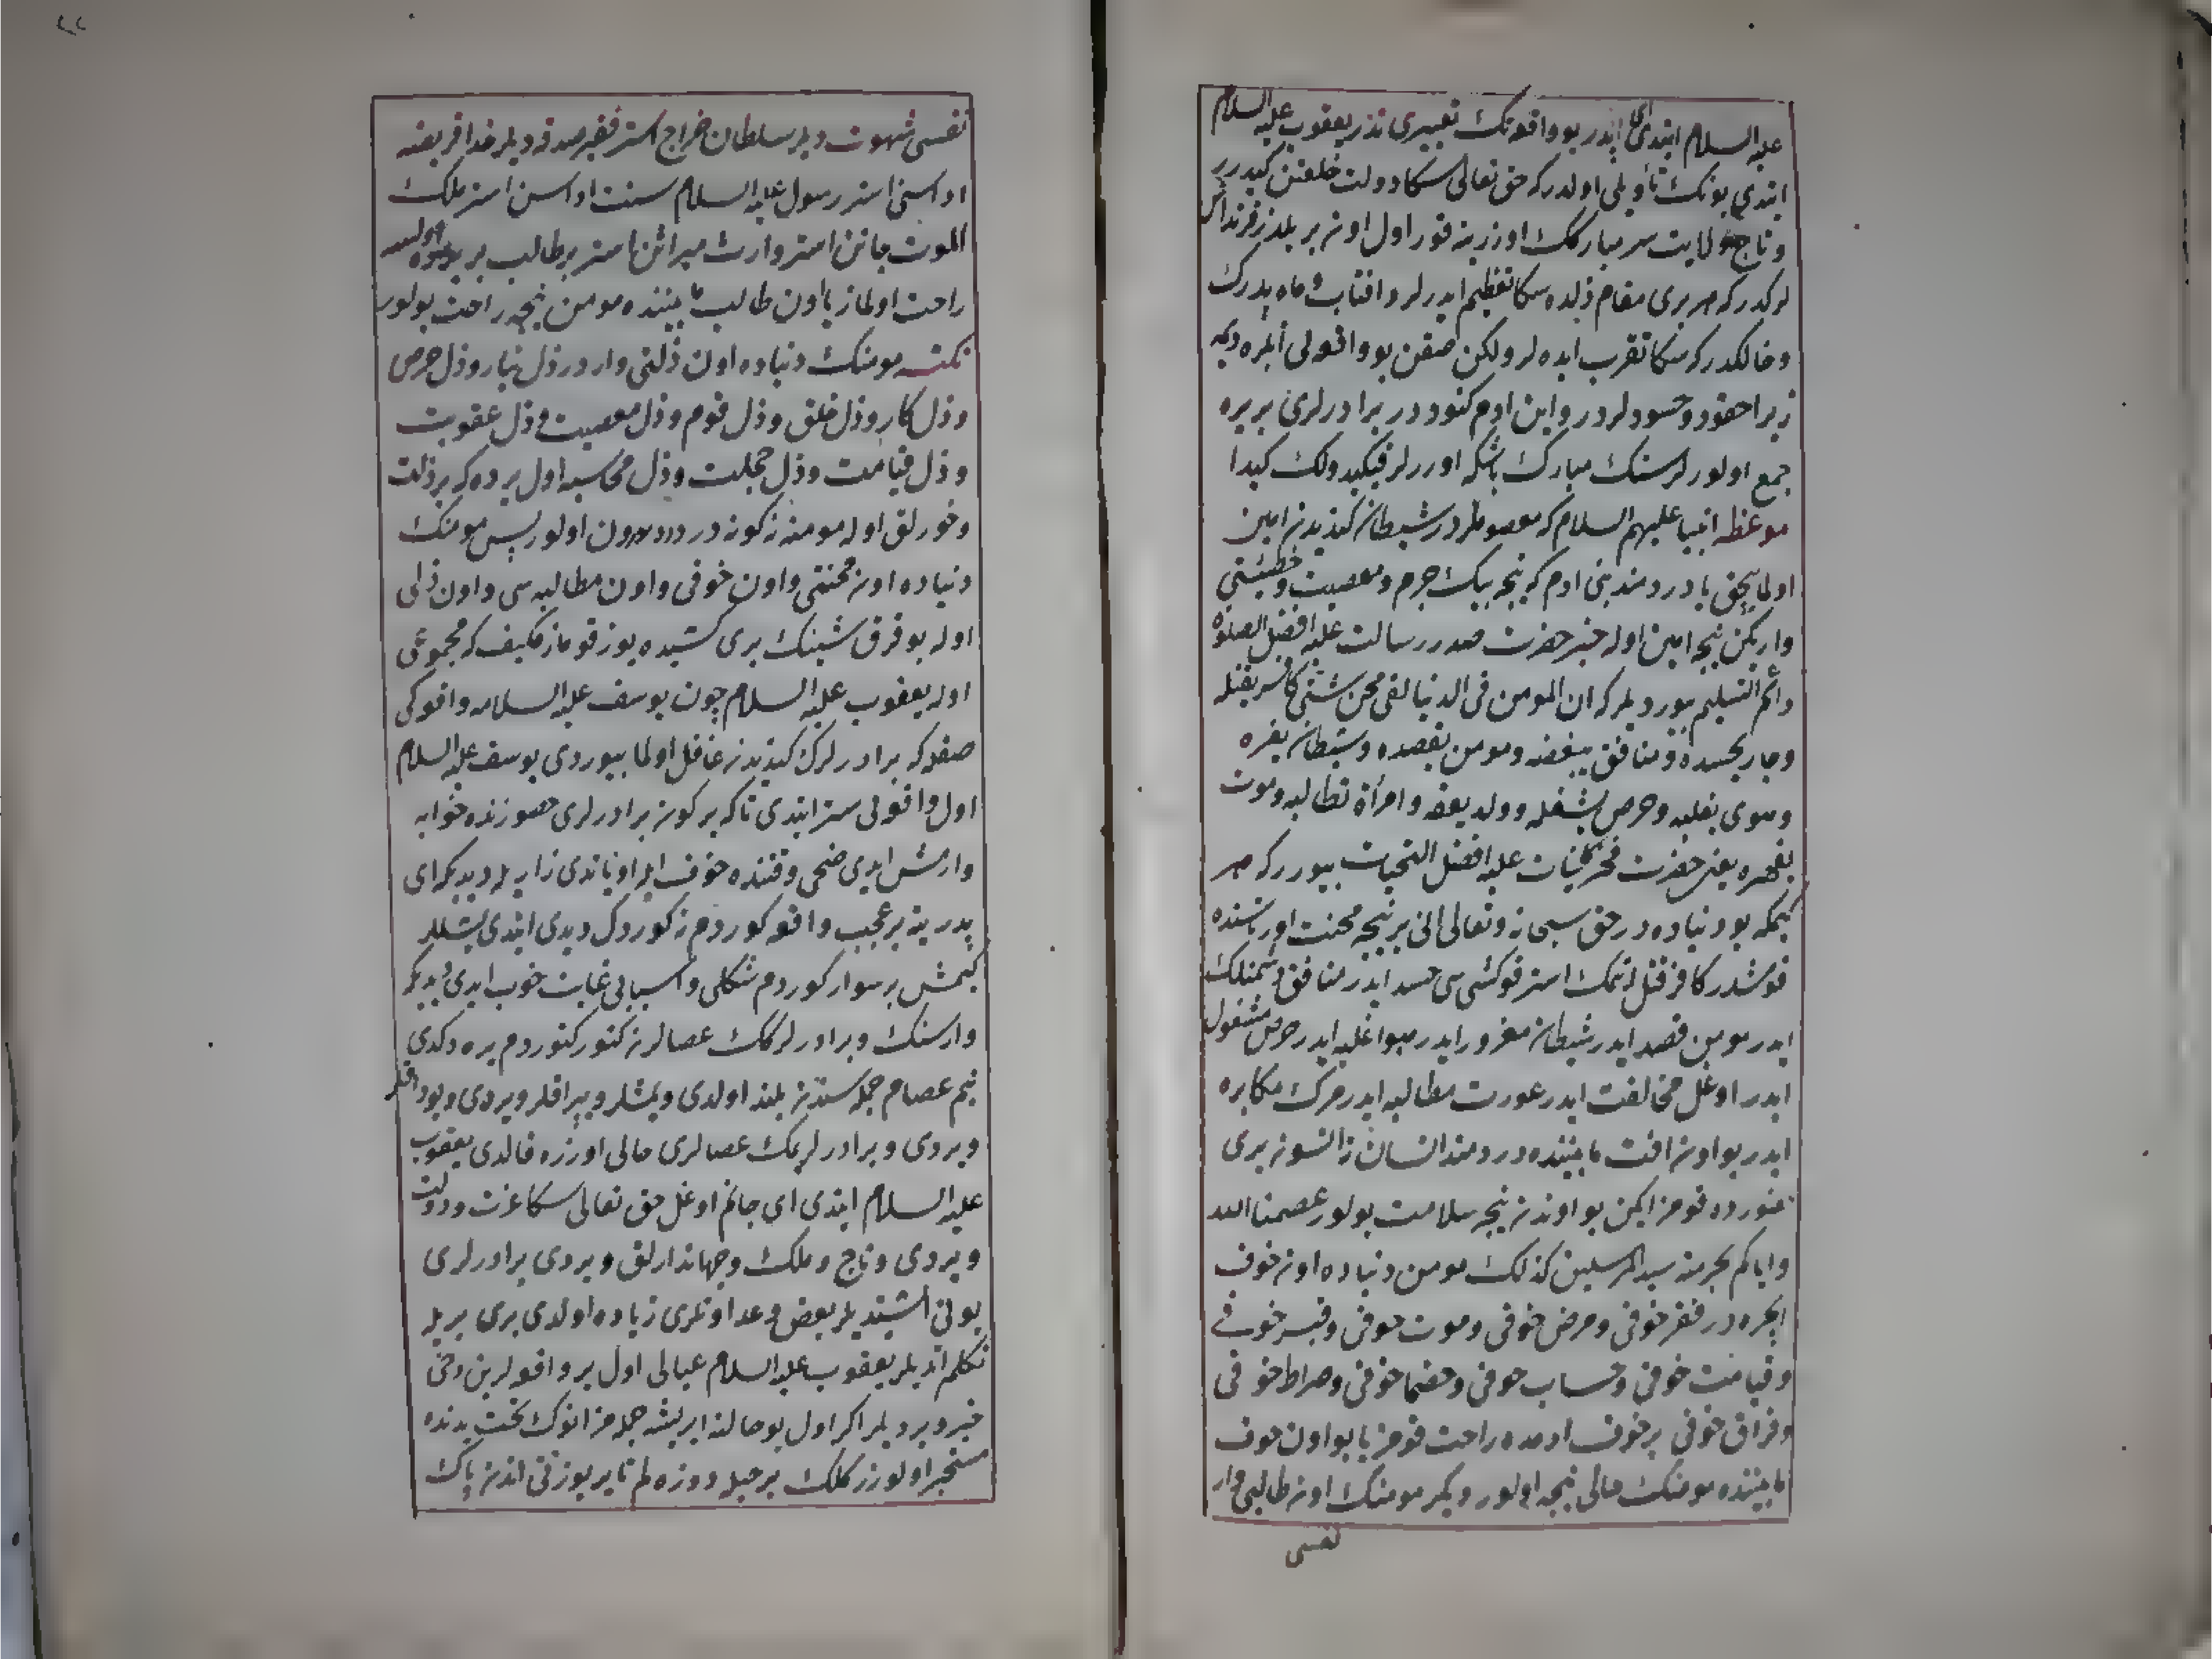 عليه السلام ايتدى اى پدر بو واقعه‌نك تعبيرى ندر يعقوب عليه السلام
ايتدي بونك تأويلى اولدر كه حق تعالى سكا دولت خلعتن كيدرر
وتاج ولايت سر مباركك اوزرينه قور اول اون بر يلدز قرنداش
لركدر كه هر برى مقام ذلده سكا تعظيم ايدرلر وافتاب وماه پدرك
وخالكدر كه سكا تقرب ايده‌لر ولكن صقن بو واقعه‌لى ايلره ديمه
زيرا حقود وحسودلردر وابن ادم كنوددر برادرلرى بر يره
جمع اولورلر سنك مبارك باشكه اوررلر فيكيدولك كيدا
موعظه انبيا عليهم السلام كه معصوملردر شيطان كيديدن امين
اولمايجق يا دردمند بنى ادم كه نيجه بيك جرم ومعصيت وخطيئتى
وار يكن نيجه امين اوله خبر حضرت صدر رسالت عليه افضل الصلوة
واكمل التسليم بيورديلر كه ان المومن فى الدنيا لفى محن شتى كافر يقتله
وجار يحسده ومنافق يبغضه ومومن يقصده وشيطان يغره
وهوى يغلبه وحرص يشغله وولد يعقه وامرأة تطالبه وموت
يقهره يعنى حضرت فخر كائنات عليه افضل التحيات بيوررر كه هر
كيمكه بو دنياده در حق سبحانه وتعالى انى بر نيجه محنت اورتاسنده
قومشدر كافر قتل اتمك استر قوكشى سى حسد ايدر منافق دشمنلك
ايدر مومن قصد ايدر شيطان مغرور ايدر هوا غلبه ايدر حرص مشغول
ايدر اوغل مخالفت ايدر عورت مطالبه ايدر مرك مكابره
ايدر بو اون افت مابيننده دردمند انسان زالسون برى
حضورده قومز ايكن بو اوندن نيجه سلامت بولور عصمنا الله
واياكم بحرمة سيد المرسلين كذلك مومن دنياده اون خوف
ايچره در فقر خوفى ومرض خوفى وموت خوفى وقبر خوفى
وقيامت خوفى وحساب خوفى وخصما خوفى وصراط خوفى
وفراق خوفى بر خوف ادمده راحت قومز يا بو اون خوف
مابيننده مومنك حالى نيجه اولور ديكر مومنك اون طالبى وار
نفسى
نفسى شهوت ديلر سلطان خراج استر فقير صدقه ديلر خدا فريضه
اداسنى استر رسول عليه السلام سنت اداسن استر ملك
الموت جانن استر وارث ميراثن استر بر طالب بر يرده اولسه
راحت اولماز يا اون طالب مابيننده مومن نيجه راحت بولور
نكته مومنك دنياده اون ذلتى واردر ذل نيار وذل حرص
وذل كار وذل خلق وذل قوم وذل معصيت وذل عقوبت
وذل قيامت وذل خجلت وذل محاسبه اول يرده كه بر ذلت
وخورلق اوله مومنه نه كونه درد درون اولور پس مومنك
دنياده اون محنتى واون خوفى واون مطالبه سى واون ذلى
اوله بو قرق شينك برى كشيده يوز قوماز فكيف كه مجموعى
اوله يعقوب عليه السلام چون يوسف عليه السلامه واقعه‌كى
صقله كه برادرلرك كيديدن غافل اولما بيوردى يوسف عليه السلام
اول واقعه‌لى ستر ايتدى تا كه بر كون برادرلرى حضورنده خوابه
وارمش ايدى ضحى وقتنده خوف ايله اوياندى زاريله ديديكه اى
پدر ينه بر عجب واقعه كوردم نه كوردك ديدى ايتدى يشللر
كيمش بر سوار كوردم شكلى واسبابى غايت خوب ايدى ديديكه
وار سنك وبرادرلركك عصالرن كتور كتوردم يره دكدى
بنم عصام جمله سندن بلند اولدى ويمشلر ويپراقلر ويردى وبوداقلر
ويردى وبرادرلريمك عصالرى حالى اوزره قالدى يعقوب
عليه السلام ايتدى اى جانم اوغل حق تعالى سكا عزت ودولت
ويردى وتاج وملك وجهاندارلق ويردى برادرلرى
بونى اشتديلر بغض وعداوتلرى زياده اولدى برى بريله
تكلم اتديلر يعقوب عليه السلام عيالى اول بر واقعه‌لرين دخى
خبر ويرديلر اكر اول بو حالته ايريشه جمله‌مز انوك تحت يدنده
مسخر اولورز كلك بر حيله دوزه‌لم تا ير يوزنى اندن پاك